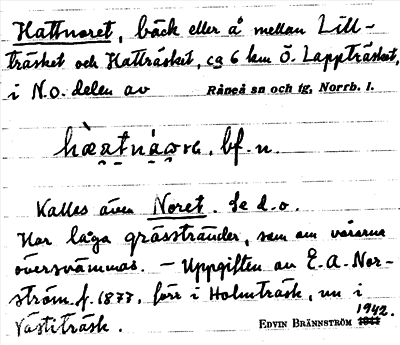 Hattnoret, bäck eller å mellan Lill-
träsket och Hatträsket, ca 6 km Ö. Lappträsket,
i N.O. delen av Råneå sn och tg, Norrb. l.
bf. n.
Kalles även Noret. Se d.o.
Har låga grässtränder, som om vårarna
översvämmas. – Uppgiften av E.A. Nor-
ström f. 1877, förr i Holmträsk, nu i
Västiträsk. EDVIN BRÄNNSTRÖM 1942.